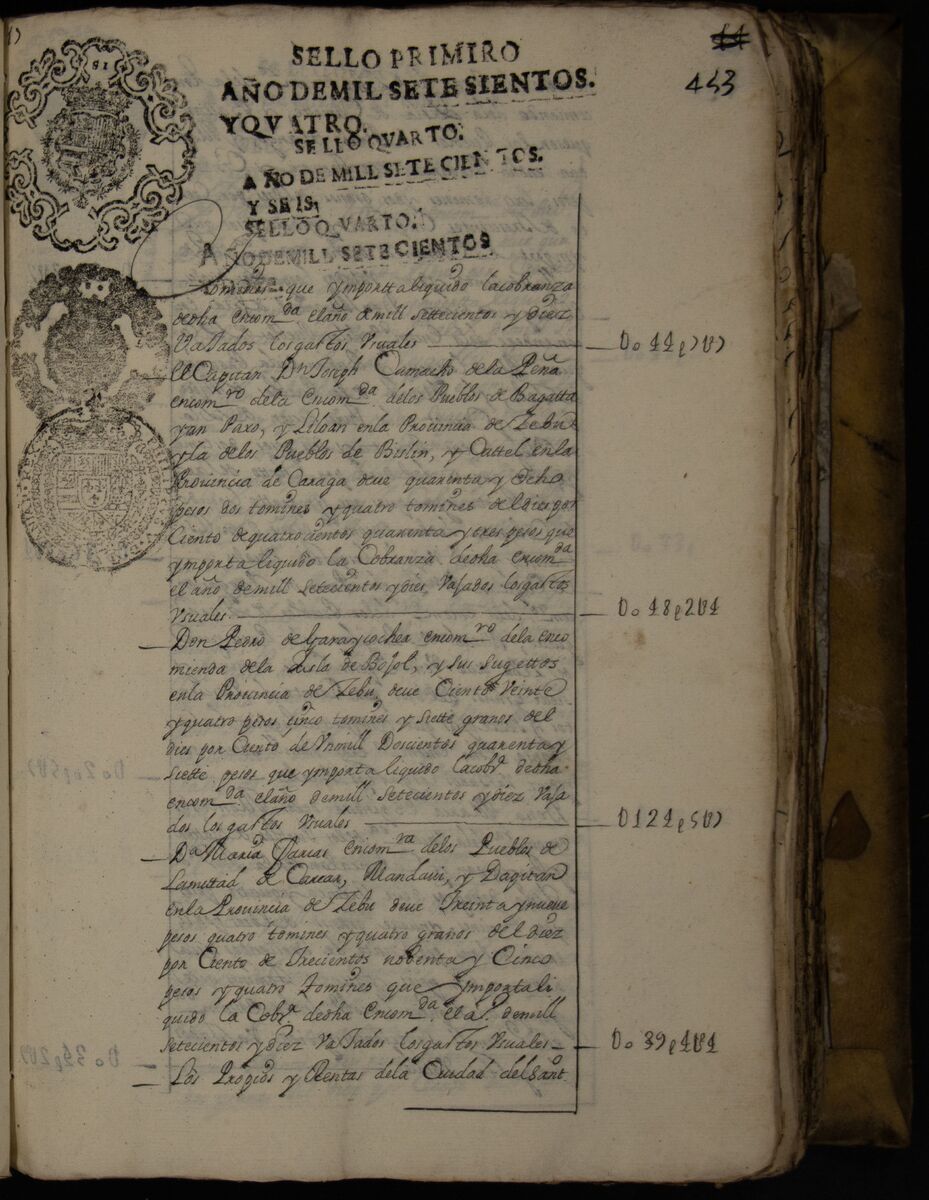 44
443
SELLO PRIMIRO
AÑO DE MIL SETE SIENTOS.
Y QVATRO.
SELLO QVARTO.
AÑO DE MILL SETE CIENTOS.
Y SEIS
SELLO QVARTO.
AÑO DE MILL SETECIENTOS
tomines que ymportta liquido la cobranza
dedha encomda. el año de mill settecientos y diez
Vajados los gastos Vsuales
El Capitan Dn Joseph Camacho de la Peña
encomro de la Encomda de los Pueblos de Bagatta
yan Paxo, y Liloan en la Provincia de Zebu
y la de los Pueblos de Bislin, y Cattel en la
Provincia de Caraga deve quarenta y Ocho
pesos dos tomines y quatro tomines del dies por
Ciento de quatrocientos quarenta y tres pesos que
ymporta liquido la Cobranza dedha encomda
el año de mill setecientos y dies Vajados los gastos
Vsuales.
Do 48 p 2 U 4
Don Pedro de Garaycochea encomro de la enco
mienda de la Isla de Bojol, y sus sugettos
en la Provincia de Zebu deve Ciento Veinte
y quatro pesos cinco tomines y siette granos del
dies por Ciento de Vn mill Doscientos quarenta y
siette pesos que ymporta liquido la cobra. dedha
encomda el año de mill setecientos y diez Vaja
dos los gastos Vsuales
Da Maria encomra de los Pueblos de
La mittad de Carcar, Mandaui, y Dagitan
en la Provincia de Zebu deve Treinta y nueve
pesos quatro tomines y quatro granos del diez
por Ciento de Trecientos nobenta y Cinco
pesos y quatro tomines que ymporta li
quido la Cobra. dedha Encomda. el a. de mill
setecientos y diez Vajados los gastos Vsuales
Do 39 p 4 U 4
Los Propios y Rentas de la Ciudad del Sant.